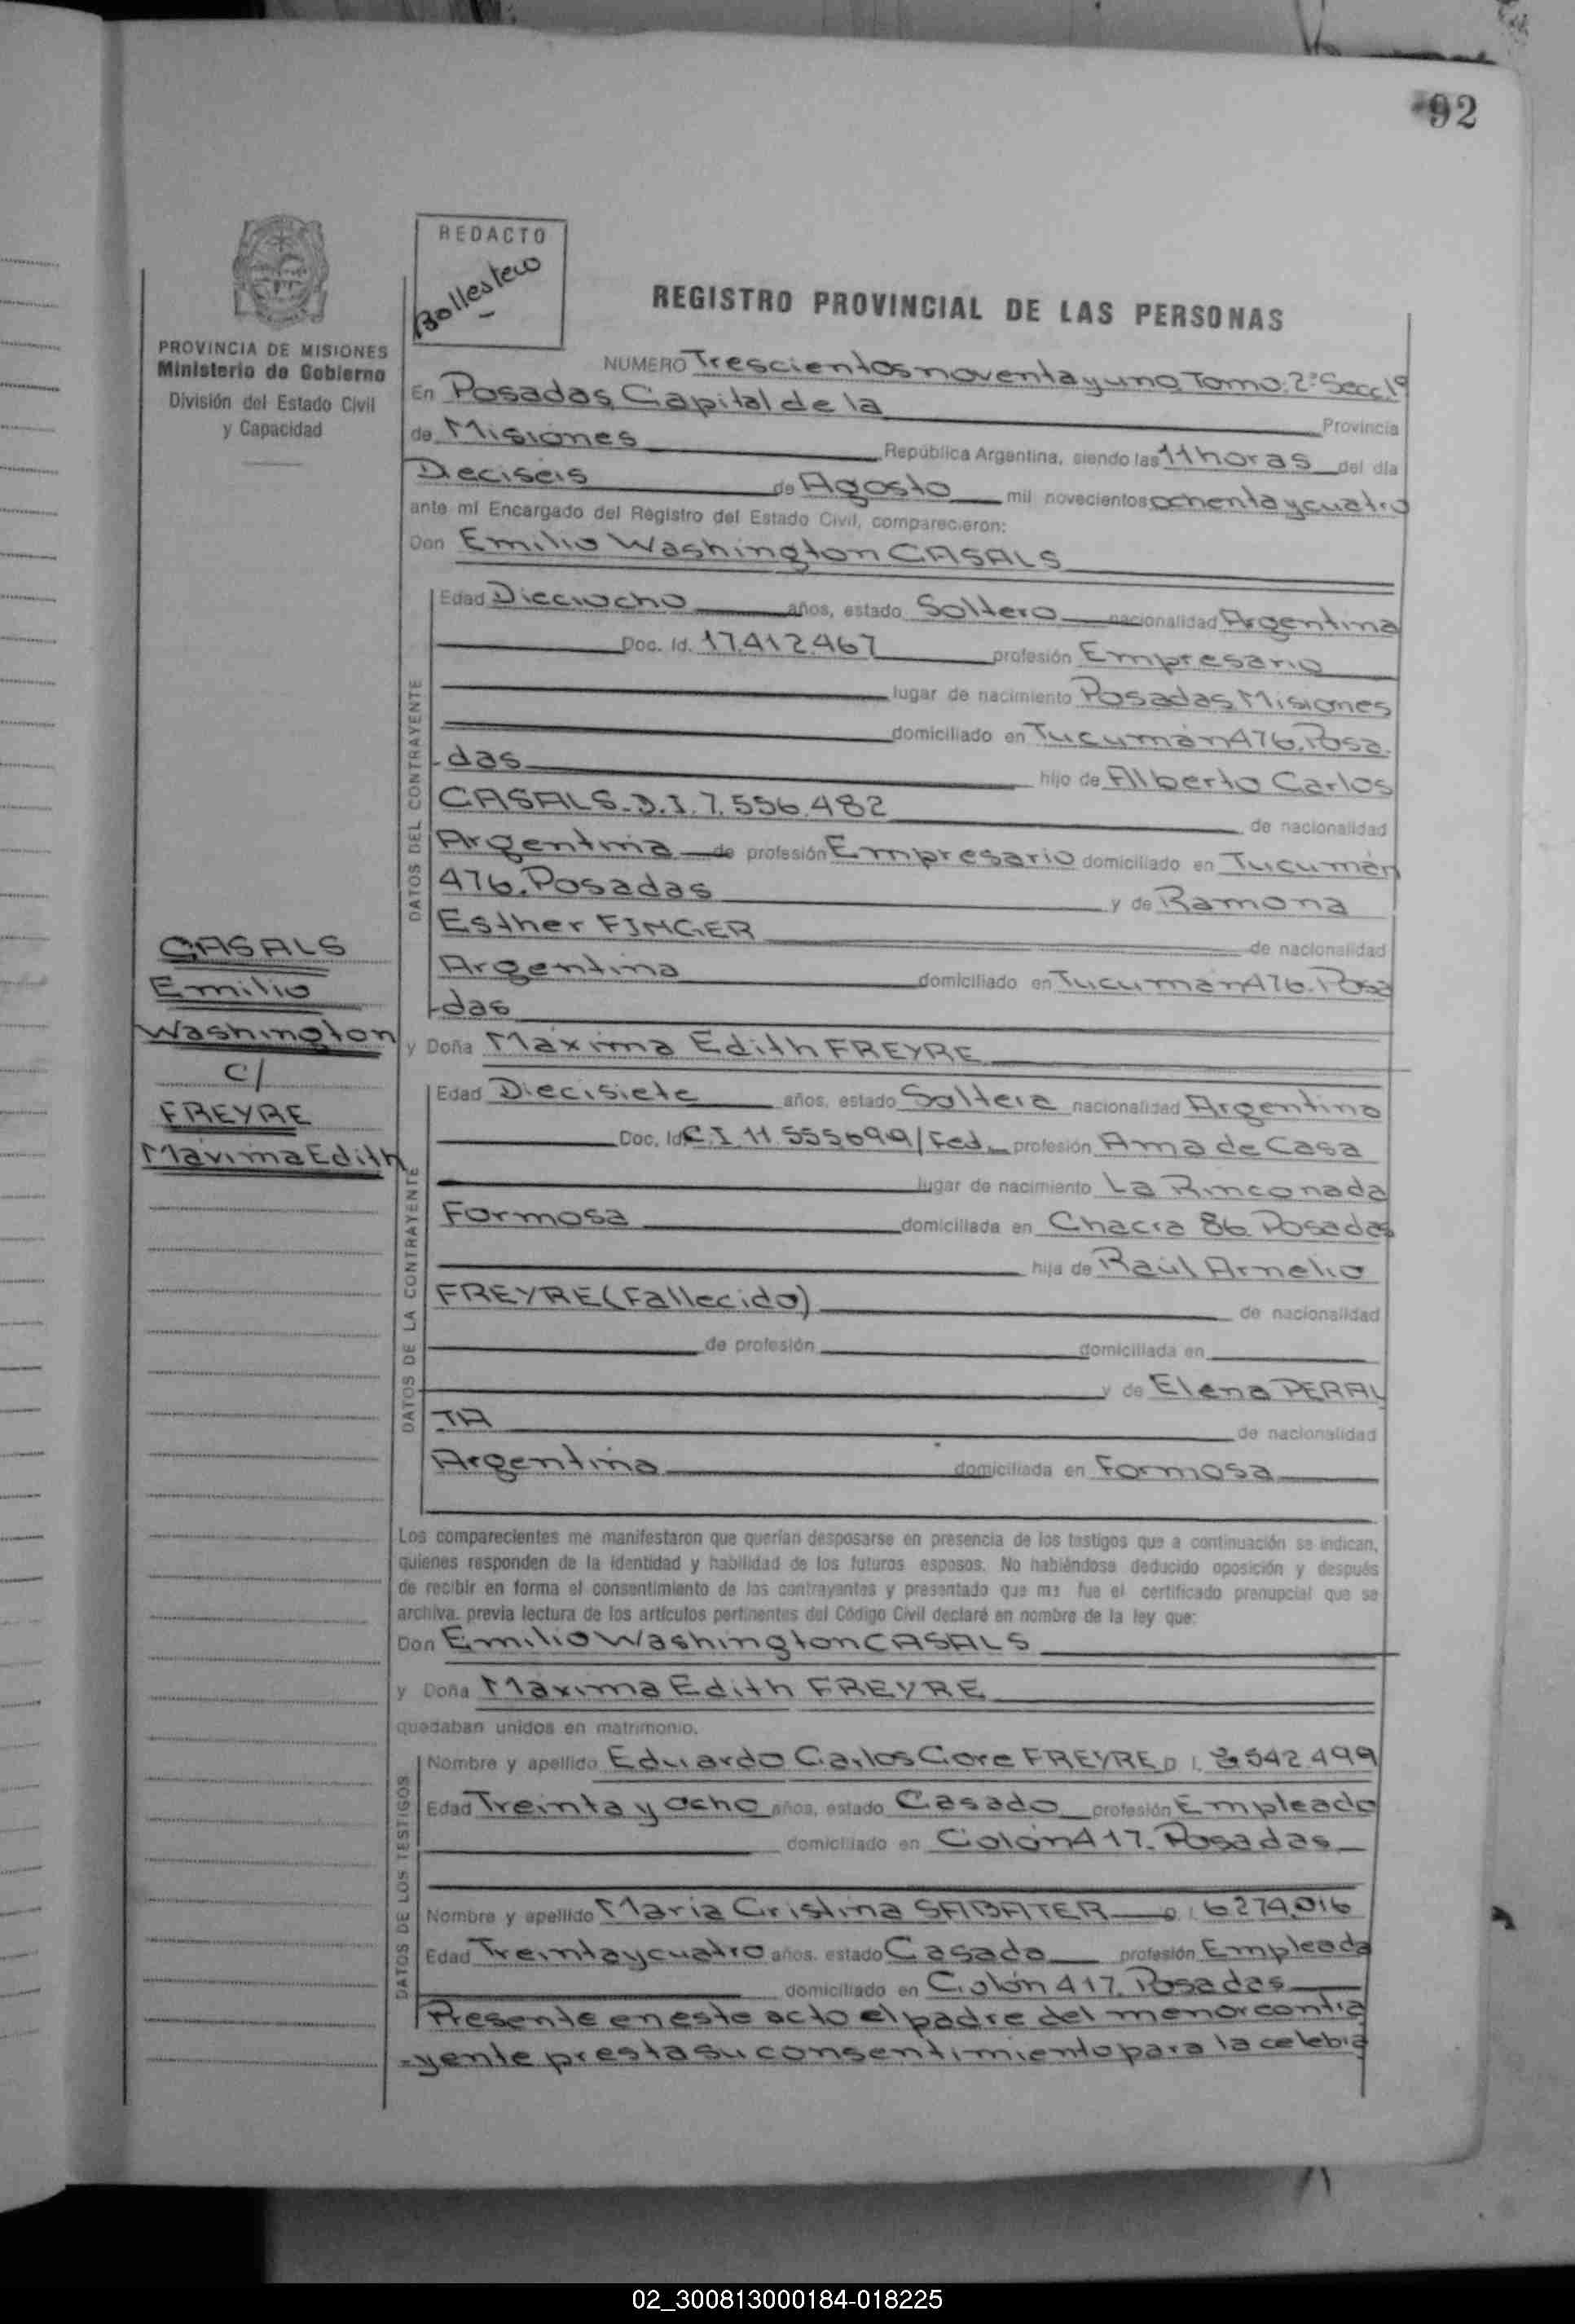 92
REDACTO
Ballestero
REGISTRO PROVINCIAL DE LAS PERSONAS
PROVINCIA DE MISIONES
Ministerio de Gobierno
División del Estado Civil
y Capacidad
NUMERO Trescientos noventa y uno. Tomo: 2º Secc 1º
En Posadas, Capital de la Provincia
de Misiones República Argentina, siendo las 11 horas del día
Dieciseis de Agosto mil novecientos ochenta y cuatro
ante mí Encargado del Registro del Estado Civil, comparecieron:
Don Emilio Washington CASALS
DATOS DEL CONTRAYENTE
Edad Dieciocho años, estado Soltero nacionalidad Argentina
Doc. Id. 17.412.467 profesión Empresario
lugar de nacimiento Posadas, Misiones
domiciliado en Tucumán 476. Posa-
-das hijo de Alberto Carlos
CASALS. D.I. 7.556.482 de nacionalidad
Argentina de profesión Empresario domiciliado en Tucumán
476. Posadas y de Ramona
Esther FINGER de nacionalidad
Argentina domiciliado en Tucumán 476. Posa
-das
CASALS
Emilio
Washington
c/
FREYRE
Máxima Edith
y Doña Máxima Edith FREYRE
DATOS DE LA CONTRAYENTE
Edad Diecisiete años, estado Soltera nacionalidad Argentina
Doc. Id C.I. 11.555699/Fed. profesión Ama de Casa
lugar de nacimiento La Rinconada
Formosa domiciliada en Chacra 86. Posadas
hija de Raúl Arnelio
FREYRE (Fallecido) de nacionalidad
de profesión domiciliada en
y de Elena PERAL
TA de nacionalidad
Argentina domiciliada en Formosa
Los comparecientes me manifestaron que querían desposarse en presencia de los testigos que a continuación se indican,
quienes responden de la identidad y habilidad de los futuros esposos. No habiéndose deducido oposición y después
de recibir en forma el consentimiento de los contrayentes y presentado que me fue el certificado prenupcial que se
archiva, previa lectura de los artículos pertinentes del Código Civil declaré en nombre de la ley que:
Don Emilio Washington CASALS
y Doña Máxima Edith FREYRE
quedaban unidos en matrimonio.
DATOS DE LOS TESTIGOS
Nombre y apellido Eduardo Carlos Gore FREYRE D.I. 8.542.499
Edad Treinta y ocho años, estado Casado profesión Empleado
domiciliado en Colón 417. Posadas
Nombre y apellido Maria Cristina SABATER D.I. 6274.016
Edad Treinta y cuatro años, estado Casada profesión Empleada
domiciliado en Colón 417. Posadas
Presente en este acto el padre del menor contra
-yente presta su consentimiento para la celebra
02_300813000184-018225